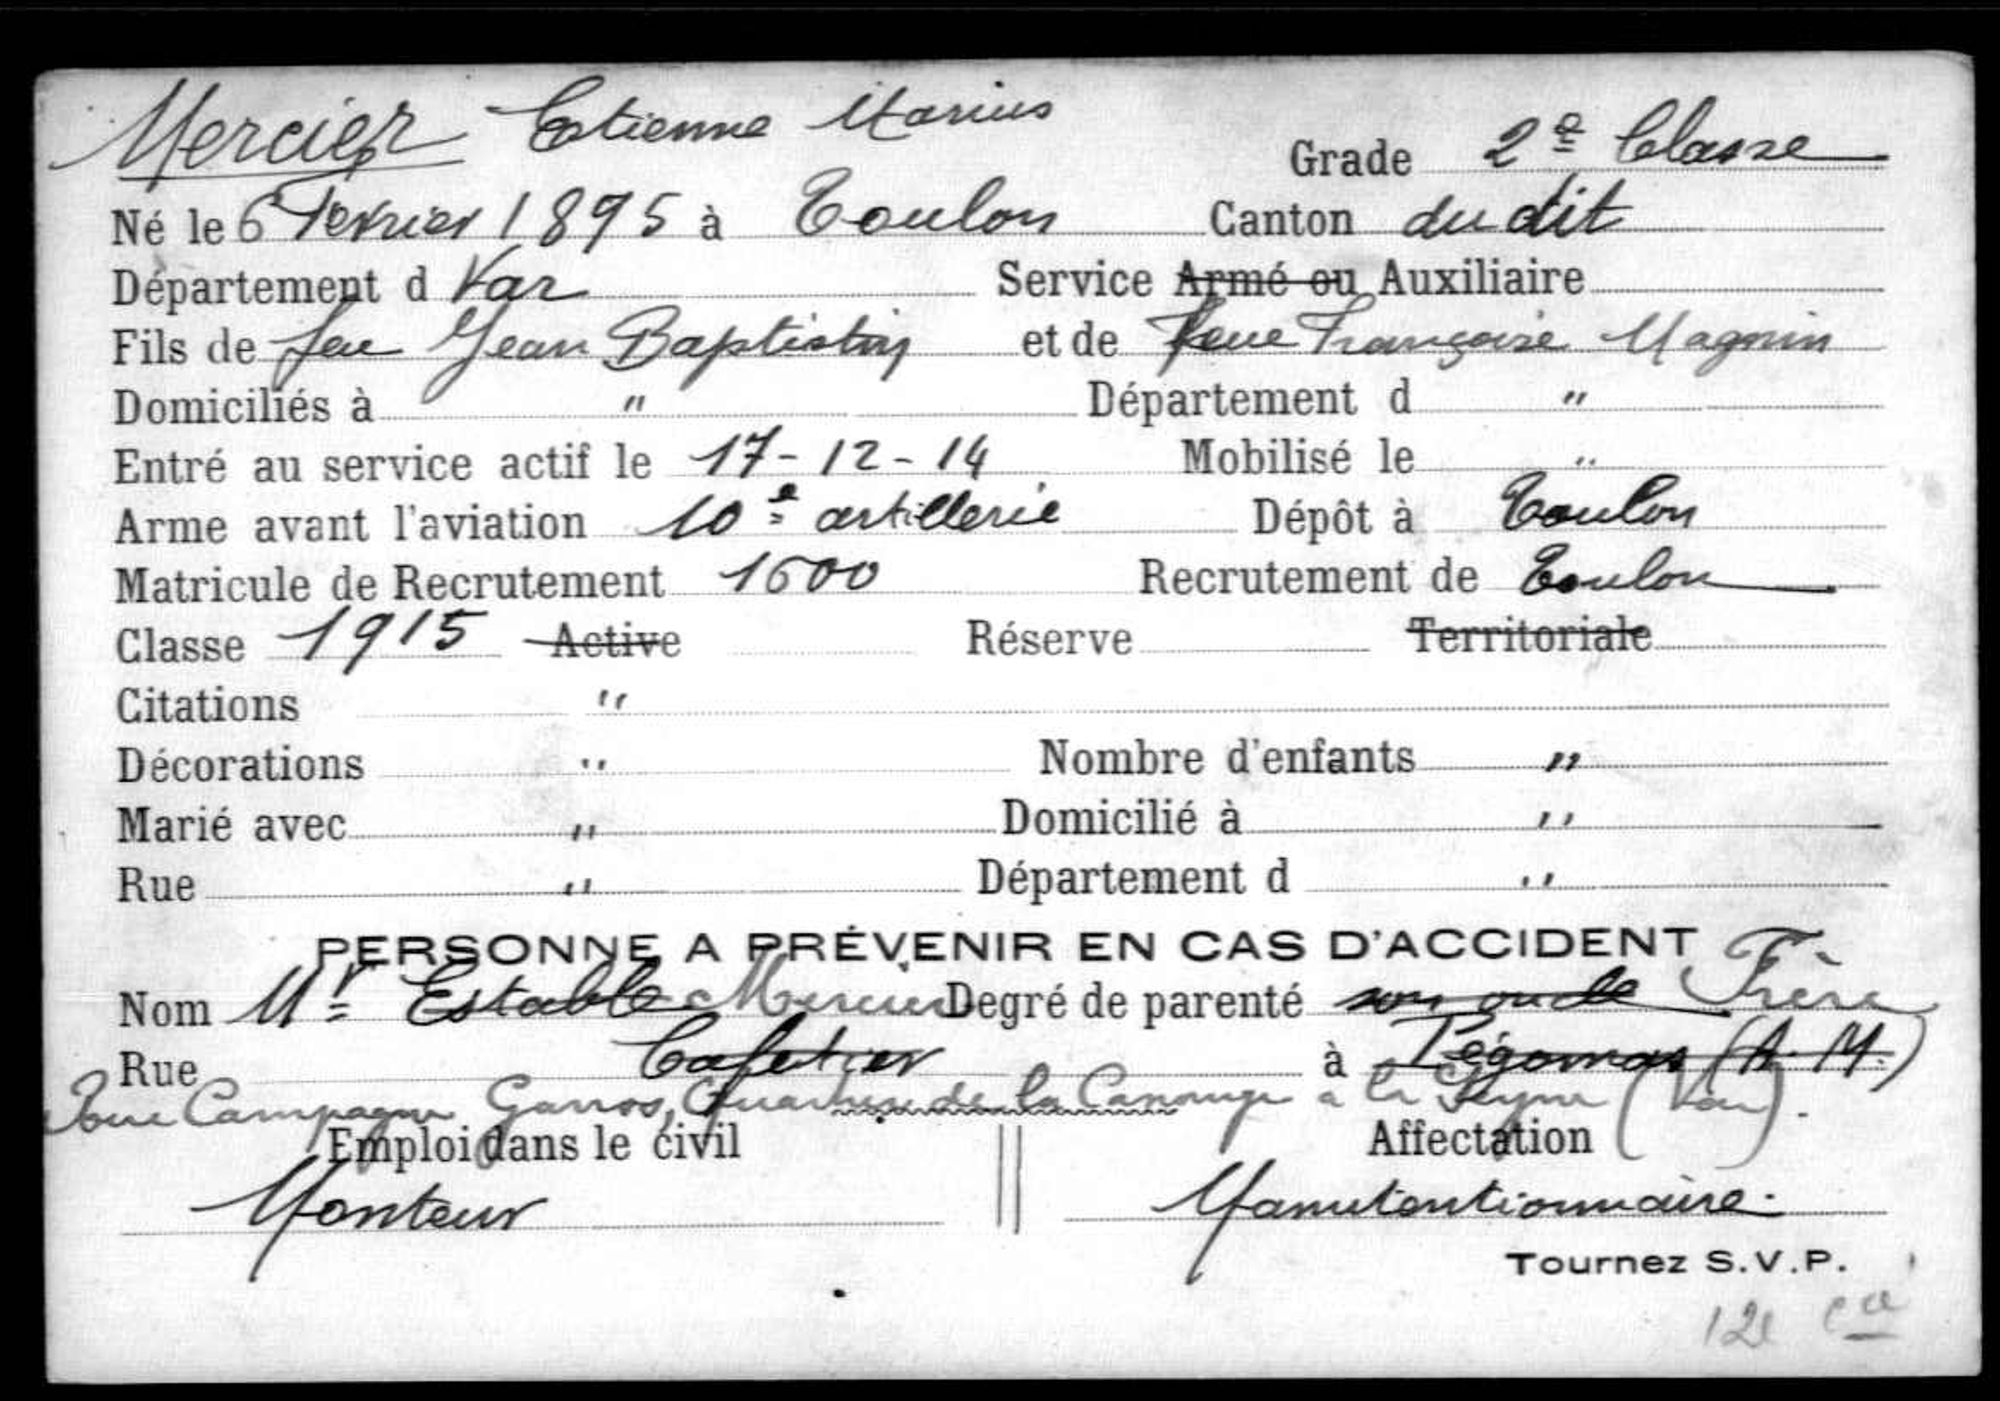 Mercier Estienne Marius
Grade 2e Classe
Né le 6 Fevrier 1895 à Toulon Canton du dit
Département d Var Service Armé ou Auxiliaire
Fils de feu Jean Baptistin et de feue Françoise Magnin
Domiciliés à " Département d "
Entré au service actif le 17-12-14 Mobilisé le "
Arme avant l'aviation 10e artillerie Dépôt à Toulon
Matricule de Recrutement 1600 Recrutement de Toulon
Classe 1915 Active Réserve Territoriale
Citations "
Décorations " Nombre d'enfants "
Marié avec " Domicilié à "
Rue " Département d "
PERSONNE A PRÉVENIR EN CAS D'ACCIDENT
Nom Mr Estable Mercier Degré de parenté son oncle Frère
Rue Cafetier à Pégomas (A. M.)
Campagne Quartier de la à la Seyne (Var).
Emploi dans le civil Affectation
Monteur Manutentionnaire.
Tournez S.V.P.
12e Cie